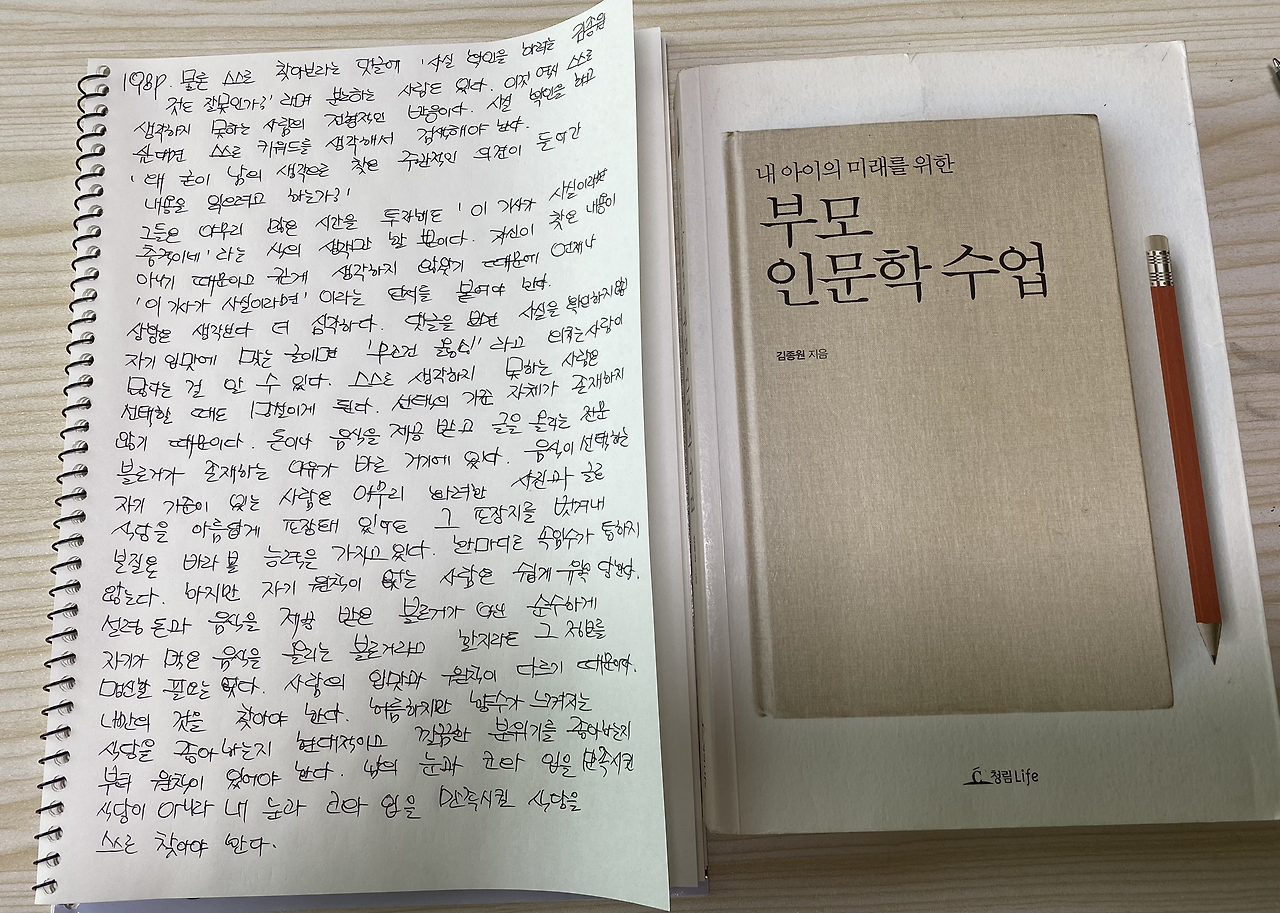 198p. 물론 스스로 찾아보라는 댓글에 '사실 확인을 하려는 김종원
것도 잘못인가?' 라며 분노하는 사람도 있다. 이것 역시 스스로
생각하지 못하는 사람의 전형적인 반응이다. 사실 확인을 하고
싶다면 스스로 키워드를 생각해서 검색해야 한다.
'왜 굳이 남의 생각으로 찾은 주관적인 의견이 들어간
내용을 읽으려고 하는가?'
그들은 아무리 많은 시간을 투자해도 '이 기사가 사실이라면
충격이네' 라는 식의 생각만 할 뿐이다. 자신이 찾은 내용이
아니기 때문이고 깊게 생각하지 않았기 때문에 언제나
'이 기사가 사실이라면' 이라는 단서를 붙여야 한다.
상황은 생각보다 더 심각하다. 댓글을 보면 사실을 확인하지 않고
자기 입맛에 맞는 글이면 '무조건 옳음식' 라고 외치는 사람이
많다는 걸 알 수 있다. 스스로 생각하지 못하는 사람은
선택할 때도 망설이게 된다. 선택의 기준 자체가 존재하지
않기 때문이다. 돈이나 음식을 제공 받고 글을 올리는 전문
블로거가 존재하는 이유가 바로 거기에 있다. 음식이 선택하는
자기 기준이 있는 사람은 아무리 화려한 사진과 글로
식당을 아름답게 포장해 있어도 그 포장지를 벗겨내
본질을 바라볼 능력을 가지고 있다. 한마디로 속임수가 통하지
않는다. 하지만 자기 원칙이 없는 사람은 쉽게 유혹 당한다.
설령 돈과 음식을 제공 받은 블로거가 아닌 순수하게
자기가 먹은 음식을 올리는 블로거라고 할지라도 그 정보를
맹신할 필요는 없다. 사람의 입맛과 원칙이 다르기 때문이다.
나만의 것을 찾아야 한다. 허름하지만 향수가 느껴지는
식당을 좋아하는지 현대적이고 깔끔한 분위기를 좋아하는지
부터 원칙이 있어야 한다. 남의 눈과 코와 입을 만족시킨
식당이 아니라 내 눈과 코와 입을 만족시킬 식당을
스스로 찾아야 한다.
내 아이의 미래를 위한
부모
인문학 수업
김종원 지음
청림Life